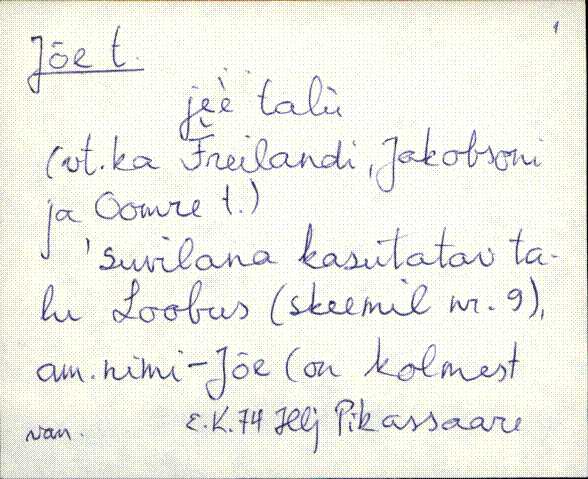 1
Jõe t.
jèè talù
(vt. ka Freilandi, Jakobsoni
ja Oomre t.)
'suvilana kasutatav ta-
lu Loobus (skeemil nr. 9),
am. nimi - Jõe (on kolmest
van. E.K. 74 Hlj Pikassaare